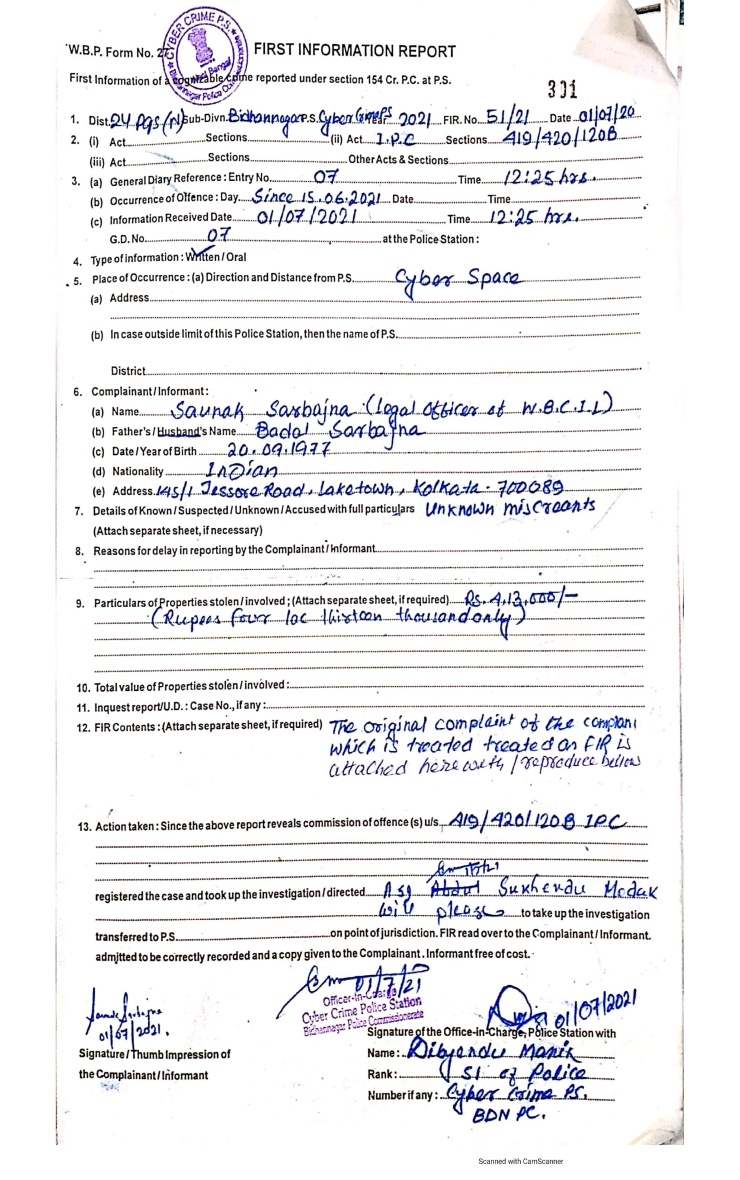 W.B.P. Form No. 27
CYBER CRIME P.S.
West Bengal
Bidhannagar Police Commissionerate
FIRST INFORMATION REPORT
First Information of a cognizable crime reported under section 154 Cr. P.C. at P.S.
301
1. Dist. 24 Pgs (N) Sub-Divn. Bidhannagar P.S. Cyber Crime PS Year 2021 FIR. No. 51/21 Date 01/07/20
2. (i) Act Sections (ii) Act I.P.C Sections 419/420/120B
(iii) Act Sections Other Acts & Sections
3. (a) General Diary Reference : Entry No. 07 Time 12:25 hrs.
(b) Occurrence of Offence : Day Since 15.06.2021 Date Time
(c) Information Received Date 01/07/2021 Time 12:25 hrs.
G.D. No. 07 at the Police Station :
4. Type of information : Written / Oral
5. Place of Occurrence : (a) Direction and Distance from P.S. Cyber Space
(a) Address
(b) In case outside limit of this Police Station, then the name of P.S.
District
6. Complainant / Informant :
(a) Name Saunak Sarbajna (Legal Officer of W.B.C.I.L)
(b) Father's / Husband's Name Badal Sarbajna
(c) Date / Year of Birth 20.09.1977
(d) Nationality Indian
(e) Address 145/1 Jessore Road, Laketown, Kolkata - 700089
7. Details of Known / Suspected / Unknown / Accused with full particulars Unknown miscreants
(Attach separate sheet, if necessary)
8. Reasons for delay in reporting by the Complainant / Informant
9. Particulars of Properties stolen / involved ; (Attach separate sheet, if required) Rs. 4,13,000/-
(Rupees four lac thirteen thousand only)
10. Total value of Properties stolen / involved :
11. Inquest report/U.D. : Case No., if any :
12. FIR Contents : (Attach separate sheet, if required) The original complaint of the complani
which is treated treated as FIR is
attached here with / reproduce bellow
13. Action taken : Since the above report reveals commission of offence (s) u/s. 419/420/120B IPC
registered the case and took up the investigation / directed ASI Abdul Sukhendu Modak
will please to take up the investigation
transferred to P.S. on point of jurisdiction. FIR read over to the Complainant / Informant.
admitted to be correctly recorded and a copy given to the Complainant. Informant free of cost.
01/7/21
Officer-In-Charge
Cyber Crime Police Station
Bidhannagar Police Commissionerate
01/07/2021.
01/07/2021
Signature / Thumb Impression of
the Complainant / Informant
Signature of the Office-in-Charge, Police Station with
Name : Dibyendu Manik
Rank : SI of Police
Number if any : Cyber Crime PS.
BDN PC.
Scanned with CamScanner